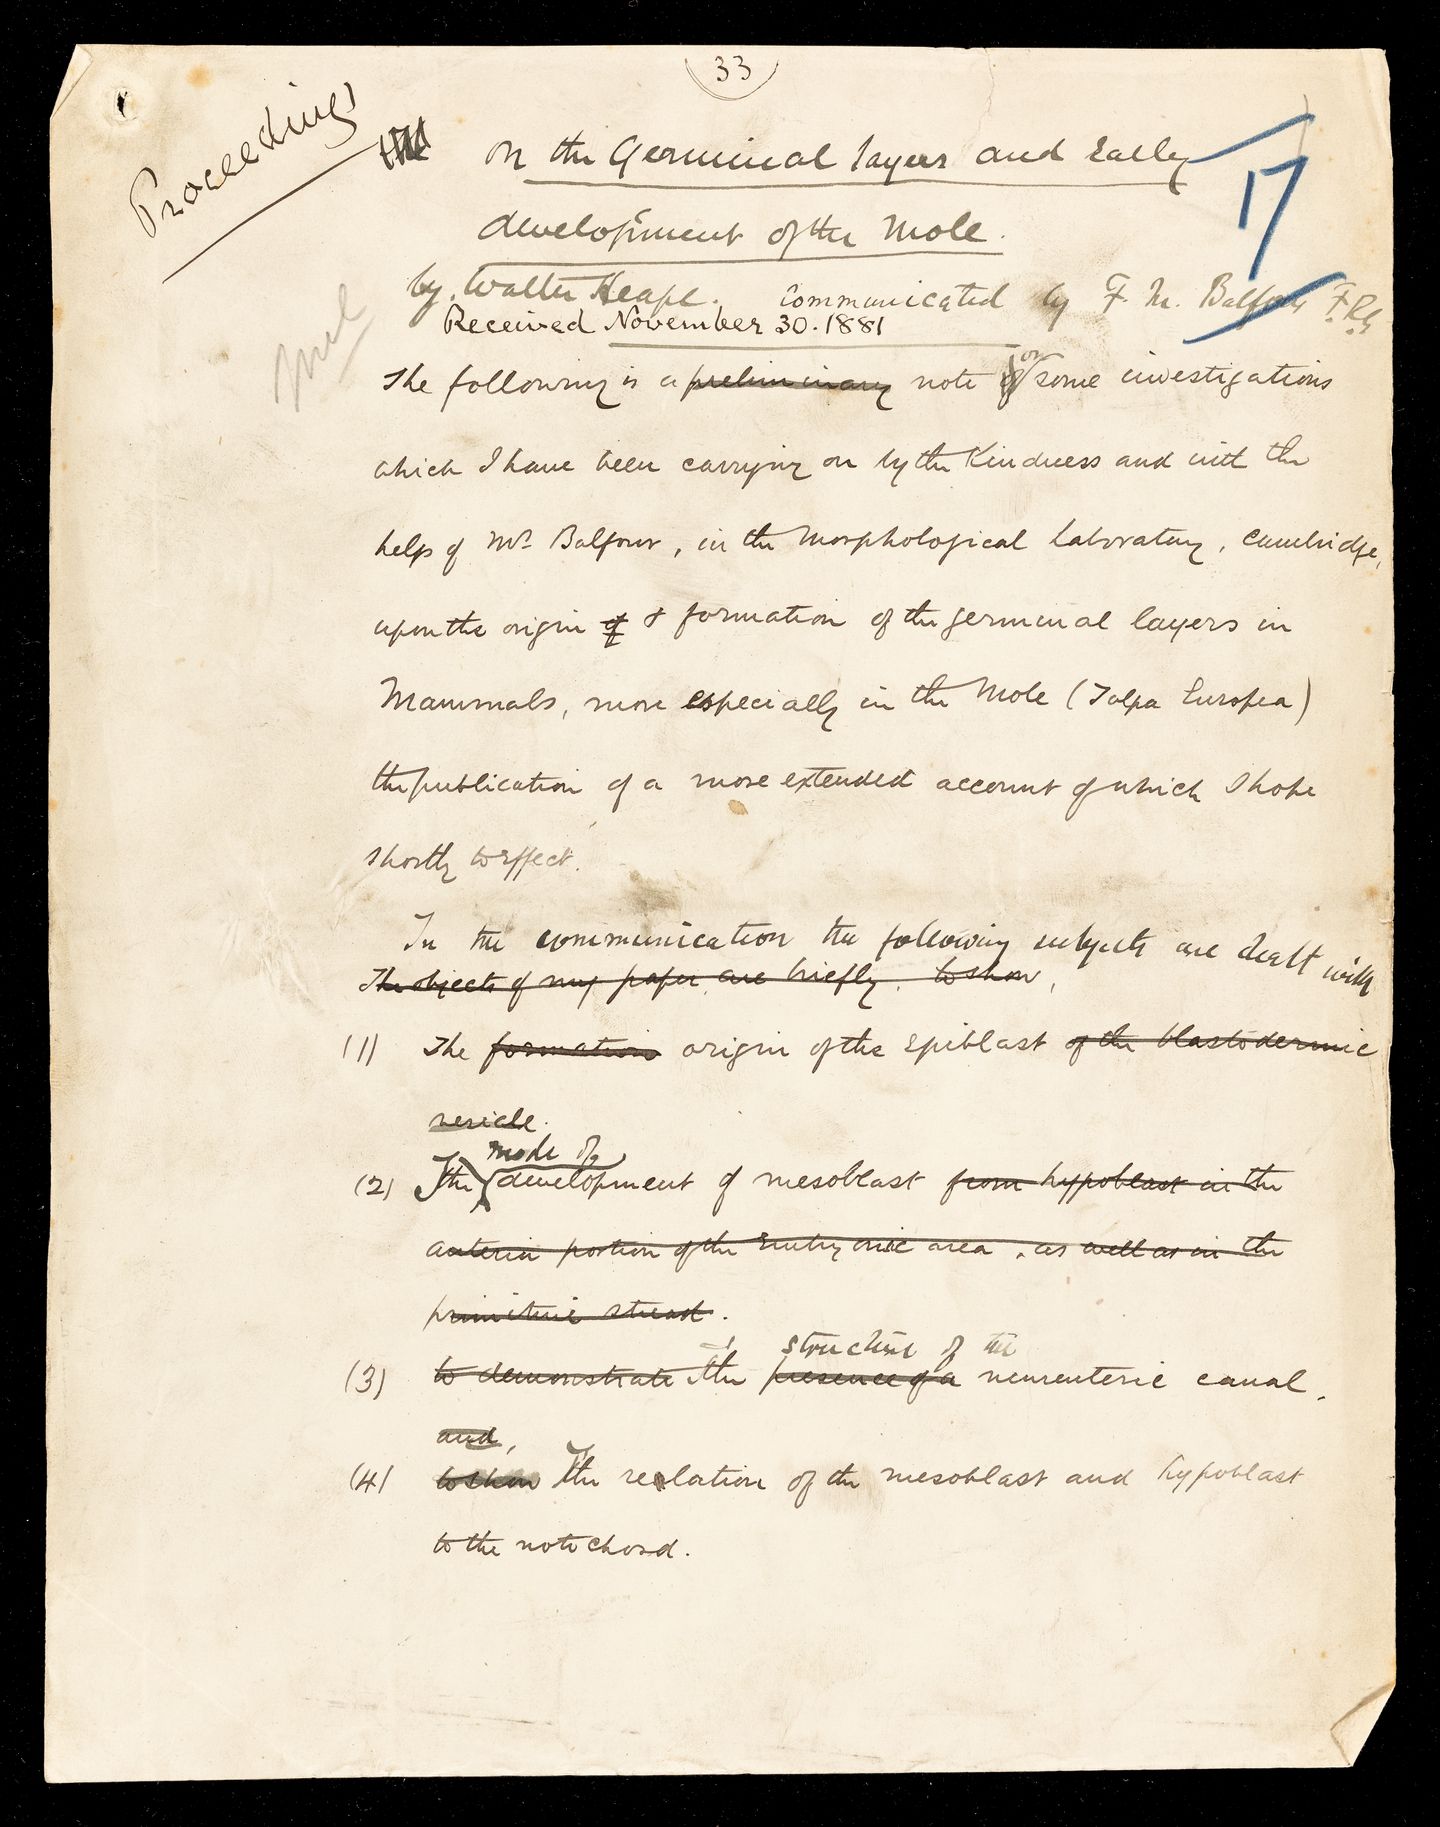 33
Proceedings
On the Germinal layers and Early
17
development of the Mole.
by Walter Heape. Communicated by F. M. Balfour F.R.S
Received November 30. 1881
The following is a preliminary note of on some investigations
which I have been carrying on by the Kindness and with the
help of Mr Balfour, in the Morphological Laboratory, Cambridge,
upon the origin of & formation of the germinal layers in
Mammals, more especially in the Mole (Talpa Europea)
the publication of a more extended account of which I hope
shortly to effect.
In the communication the following subjects are dealt with
The objects of my paper are briefly to show,
(1) The formation origin of the Epiblast of the blastodermic
vesicle.
mode of
(2) The development of mesoblast from hypoblast in the
anterior portion of the Embryonic area, as well as in the
primitive streak.
structure of the
(3) to demonstrate The presence of a neurenteric canal.
and,
(4) to show The relation of the mesoblast and hypoblast
to the notochord.